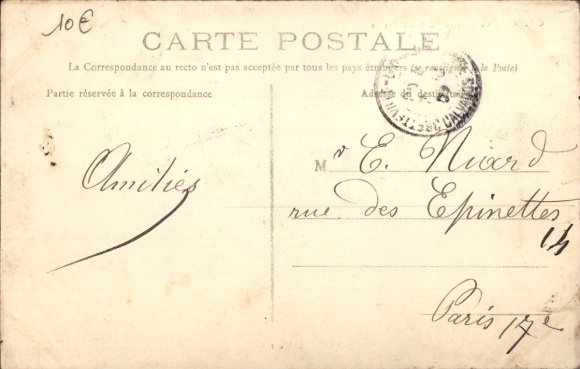 10€
CARTE POSTALE
La Correspondance au recto n'est pas acceptée par tous les pays étrangers (se renseigner à la Poste)
Partie réservée à la correspondance
Adresse du destinataire
CALVADOS
Amitiés
Mr E. Niard
rue des Epinettes
14
Paris 17e